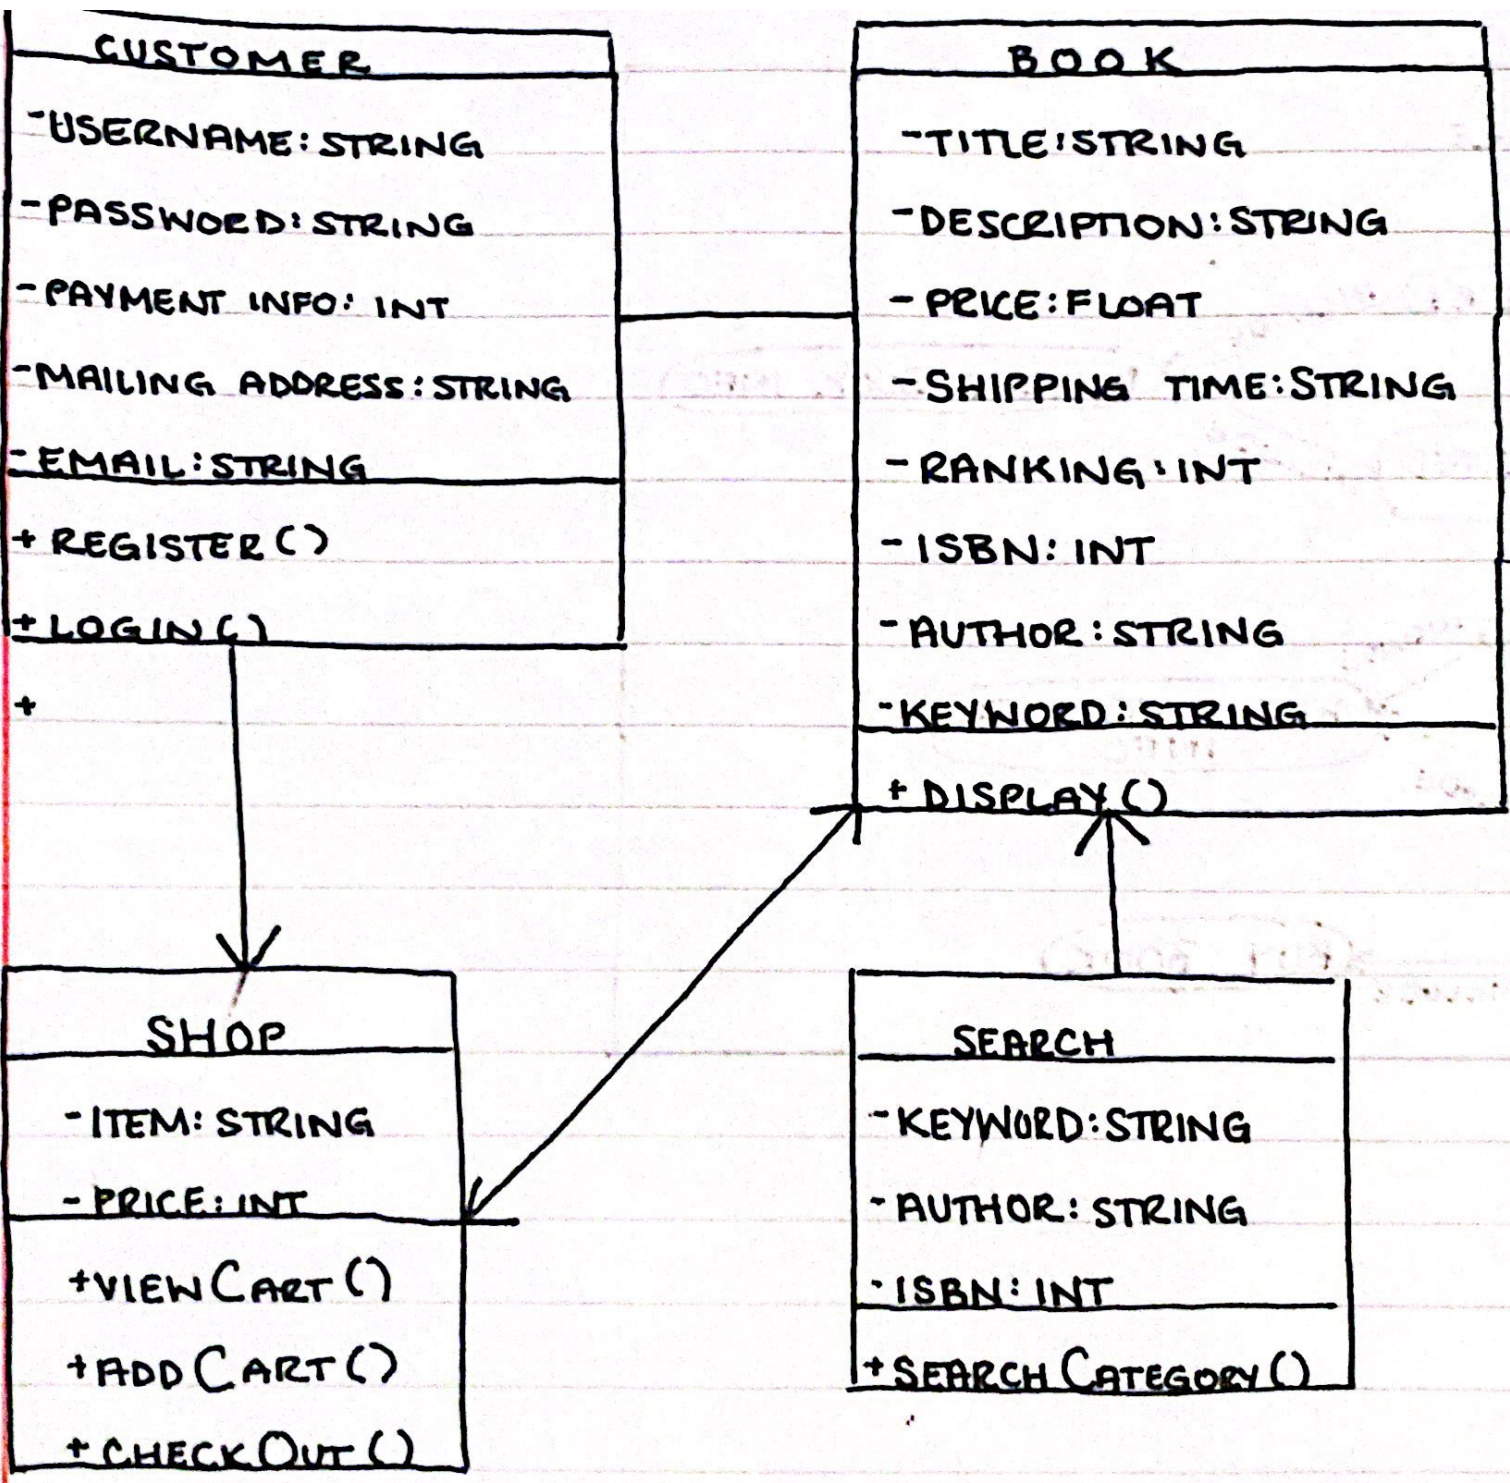 CUSTOMER
-USERNAME: STRING
-PASSWORD: STRING
-PAYMENT INFO: INT
-MAILING ADDRESS: STRING
-EMAIL: STRING
+ REGISTER()
+ LOGIN()
+
BOOK
-TITLE: STRING
-DESCRIPTION: STRING
- PRICE: FLOAT
-SHIPPING TIME: STRING
-RANKING: INT
-ISBN: INT
-AUTHOR: STRING
-KEYWORD: STRING
+ DISPLAY()
SHOP
-ITEM: STRING
- PRICE: INT
+VIEWCART()
+ADDCART()
+CHECKOUT()
SEARCH
-KEYWORD: STRING
-AUTHOR: STRING
-ISBN: INT
+SEARCHCATEGORY()